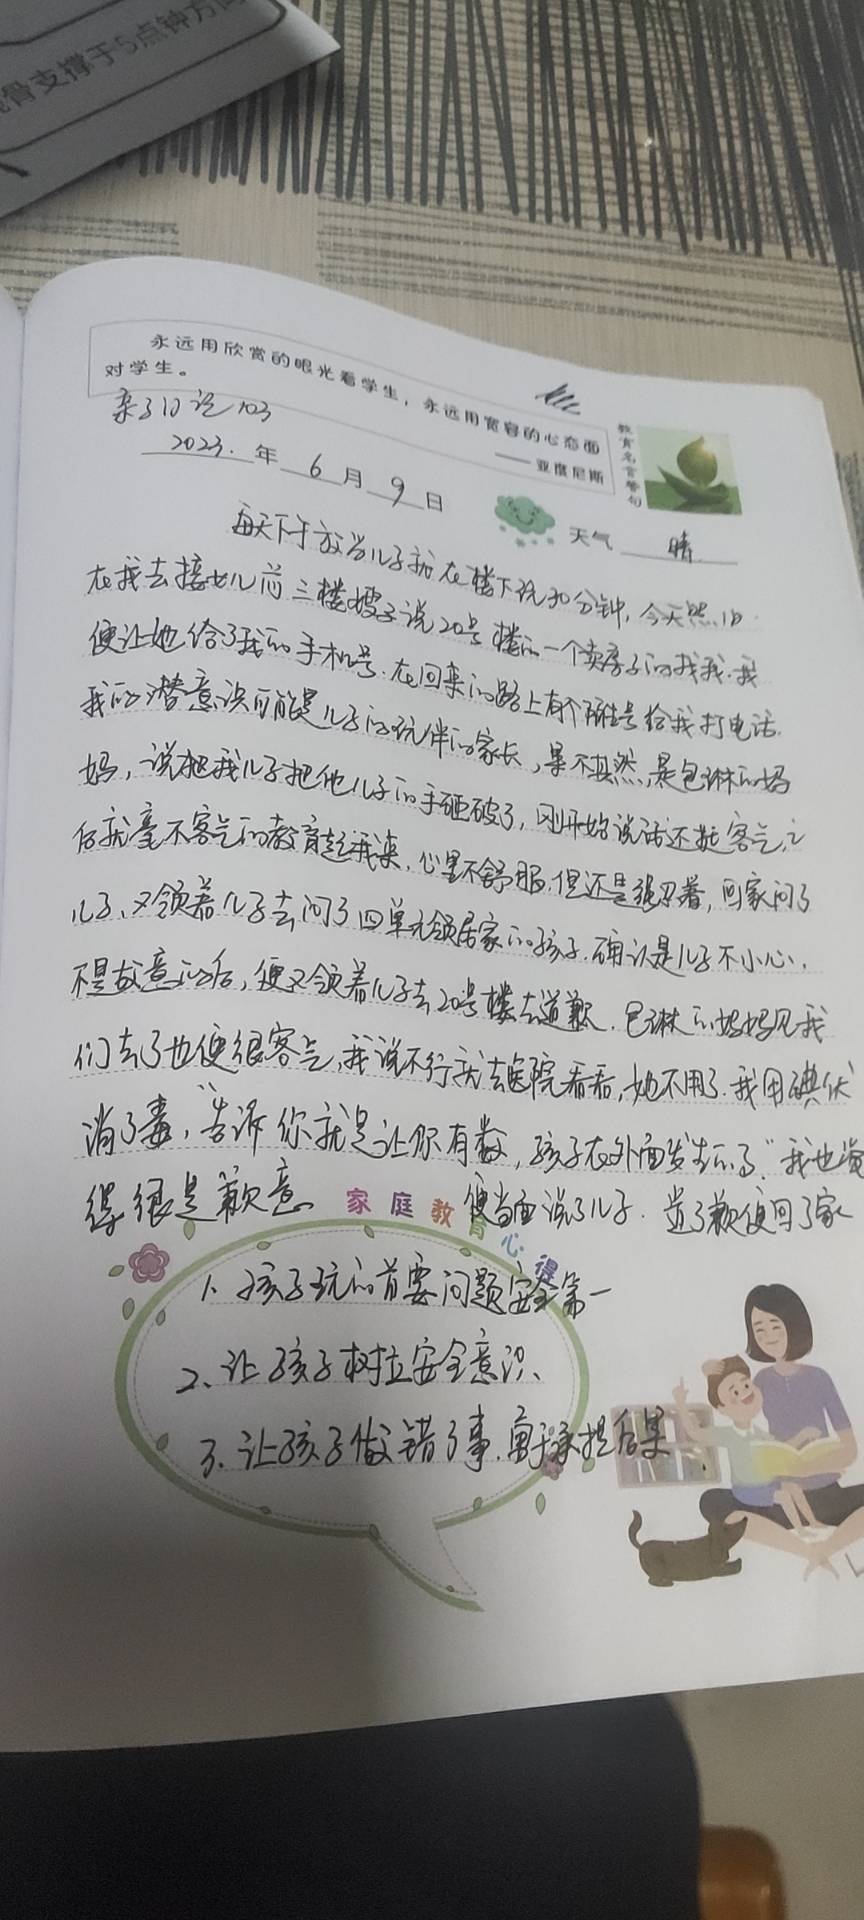 骨支撑于5点钟方向
永远用欣赏的眼光看学生，永远用宽容的心态面
对学生。
——亚度尼斯
教育名言警句
亲子日记103
2023.年6月9日
天气 晴
每天下午放学儿子就在楼下玩30分钟,今天照旧.
在我去接女儿前三楼嫂子说20号楼的一个卖房子的找我.我
便让她给了我的手机号.在回来的路上有个陌生号给我打电话.
我的潜意识可能是儿子的玩伴的家长,果不其然,是包淋的妈
妈,说把我儿子把他儿子的手砸破了,刚开始说话还挺客气,之
后就毫不客气的教育起我来,心里不舒服.但还是强忍着,回家问了
儿子、又领着儿子去问了四单元领居家的孩子.确认是儿子不小心,
不是故意的后,便又领着儿子去20号楼去道歉.包淋的妈妈见我
们去了也便很客气,我说不行就去医院看看,她不用了.我用碘伏
消了毒,"告诉你就是让你有数,孩子在外面发生的了"我也觉
得很是歉意 便当面说了儿子.道了歉便回了家
家庭教育心得
1、孩子玩的首要问题安全第一
2、让孩子树立安全意识、
3、让孩子做错了事.勇于承担后果